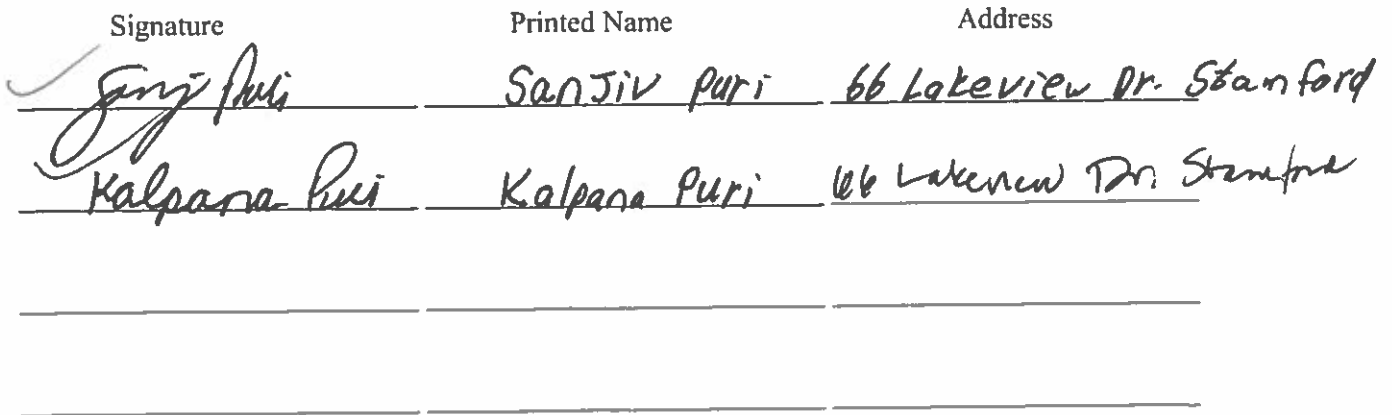 Signature Printed Name Address
Sanj Puri SanJiv Puri 66 Lakeview Dr. Stamford
Kalpana Puri Kalpana Puri 66 Lakeview Dr. Stamford